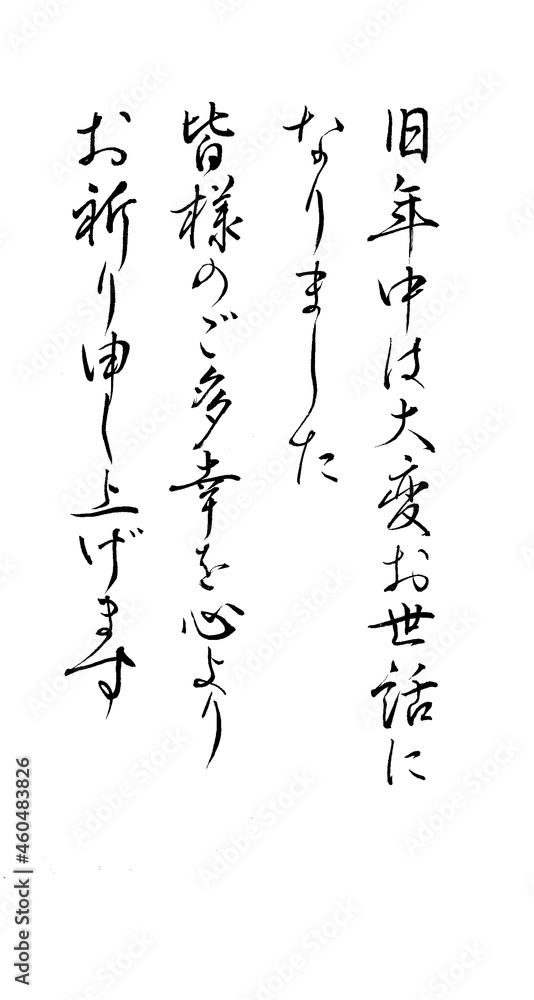 旧年中は大変お世話に
なりました
皆様のご多幸を心より
お祈り申し上げます
Adobe Stock | #460483826